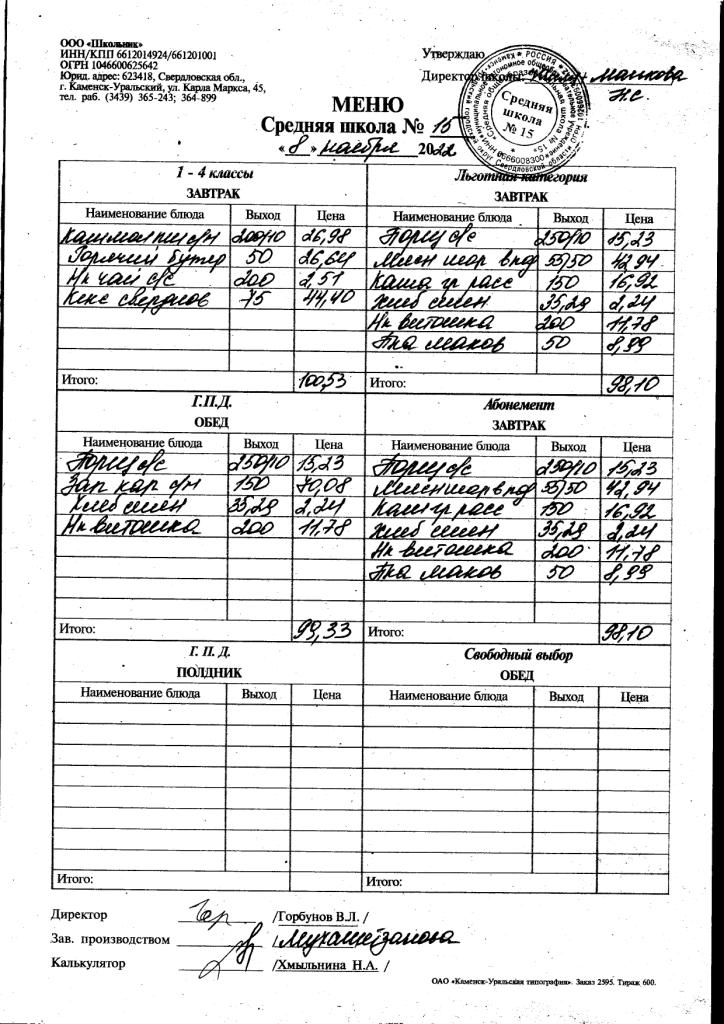 ООО «Школьник»
ИНН/КПП 6612014924/661201001
ОГРН 1046600625642
Юрид. адрес: 623418, Свердловская обл.,
г. Каменск-Уральский, ул. Карла Маркса, 45,
тел. раб. (3439) 365-243; 364-899
Утверждаю
Директор школы
Манкова
Н.С.
Средняя
школа
№ 15
МЕНЮ
Средняя школа № 15
« 8 » ноября 2022
1 - 4 классы
ЗАВТРАК
Наименование блюда Выход Цена
200/10 26,98
Горячий бутер 50 26,64
Нк чай с/с 200 2,51
Кекс свердлов 75 44,40
Итого: 100,53
Льготная категория
ЗАВТРАК
Наименование блюда Выход Цена
Борщ с/с 250/10 15,23
55/50 42,94
Каша гр расс 150 16,92
Хлеб 35,29 2,24
Нк витошка 200 11,78
Бка маков 50 8,99
Итого: 98,10
Г.П.Д.
ОБЕД
Наименование блюда Выход Цена
Борщ с/с 250/10 15,23
Зап кар 150 70,08
Хлеб 35,29 2,24
Нк витошка 200 11,78
Итого: 99,33
Абонемент
ЗАВТРАК
Наименование блюда Выход Цена
Борщ с/с 250/10 15,23
55/50 42,94
Каша гр расс 150 16,92
Хлеб 35,29 2,24
Нк витошка 200 11,78
Бка маков 50 8,99
Итого: 98,10
Г. П. Д.
ПОЛДНИК
Наименование блюда Выход Цена
Итого:
Свободный выбор
ОБЕД
Наименование блюда Выход Цена
Итого:
Директор /Горбунов В.Л. /
Зав. производством / Мухаметзанова
Калькулятор /Хмыльнина Н.А. /
ОАО «Каменск-Уральская типография». Заказ 2595. Тираж 600.